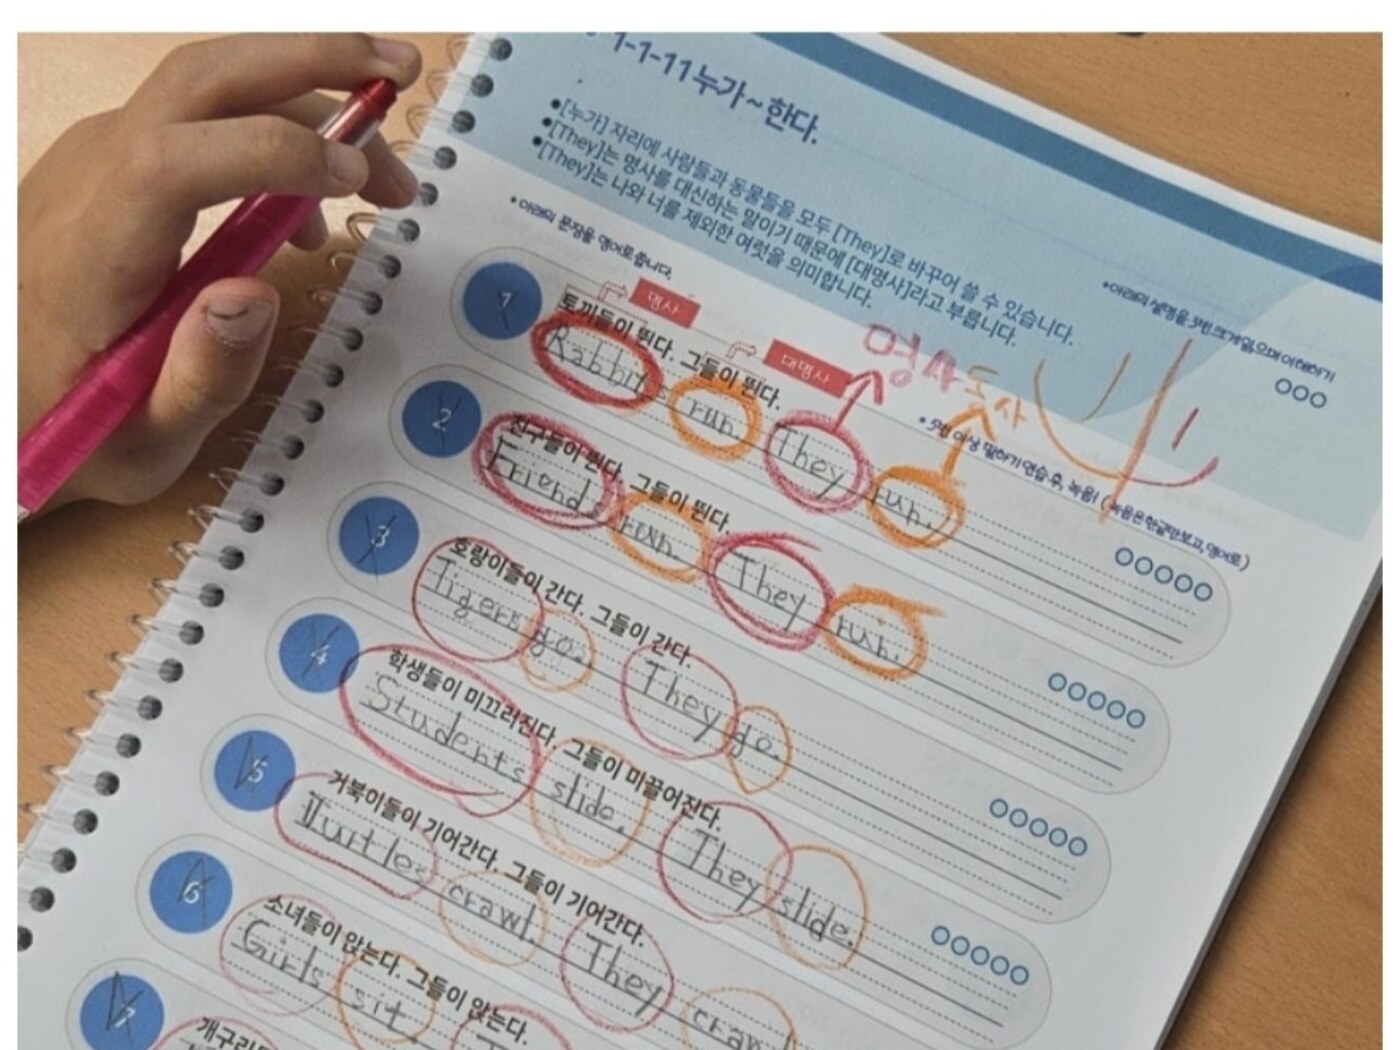 1-1-11 누가 ~ 한다.
•[누가] 자리에 사람들과 동물들을 모두 [They]로 바꾸어 쓸 수 있습니다.
•[They]는 명사를 대신하는 말이기 때문에 [대명사]라고 부릅니다.
•[They]는 나와 너를 제외한 여럿을 의미합니다.
•아래의 설명을 3번 크게 읽으며 이해하기
•아래의 문장을 영어로 씁니다.
•5번 이상 말하기 연습 후, 녹음! (녹음은 한글만 보고, 영어로)
명사
대명사
명사
동사
1
토끼들이 뛴다. 그들이 뛴다.
Rabbits run. They run.
2
친구들이 뛴다. 그들이 뛴다.
Friends run. They run.
3
호랑이들이 간다. 그들이 간다.
Tigers go. They go.
4
학생들이 미끄러진다. 그들이 미끌어진다.
Students slide. They slide.
5
거북이들이 기어간다. 그들이 기어간다.
Turtles crawl. They crawl
6
소녀들이 앉는다. 그들이 앉는다.
Girls sit.
7